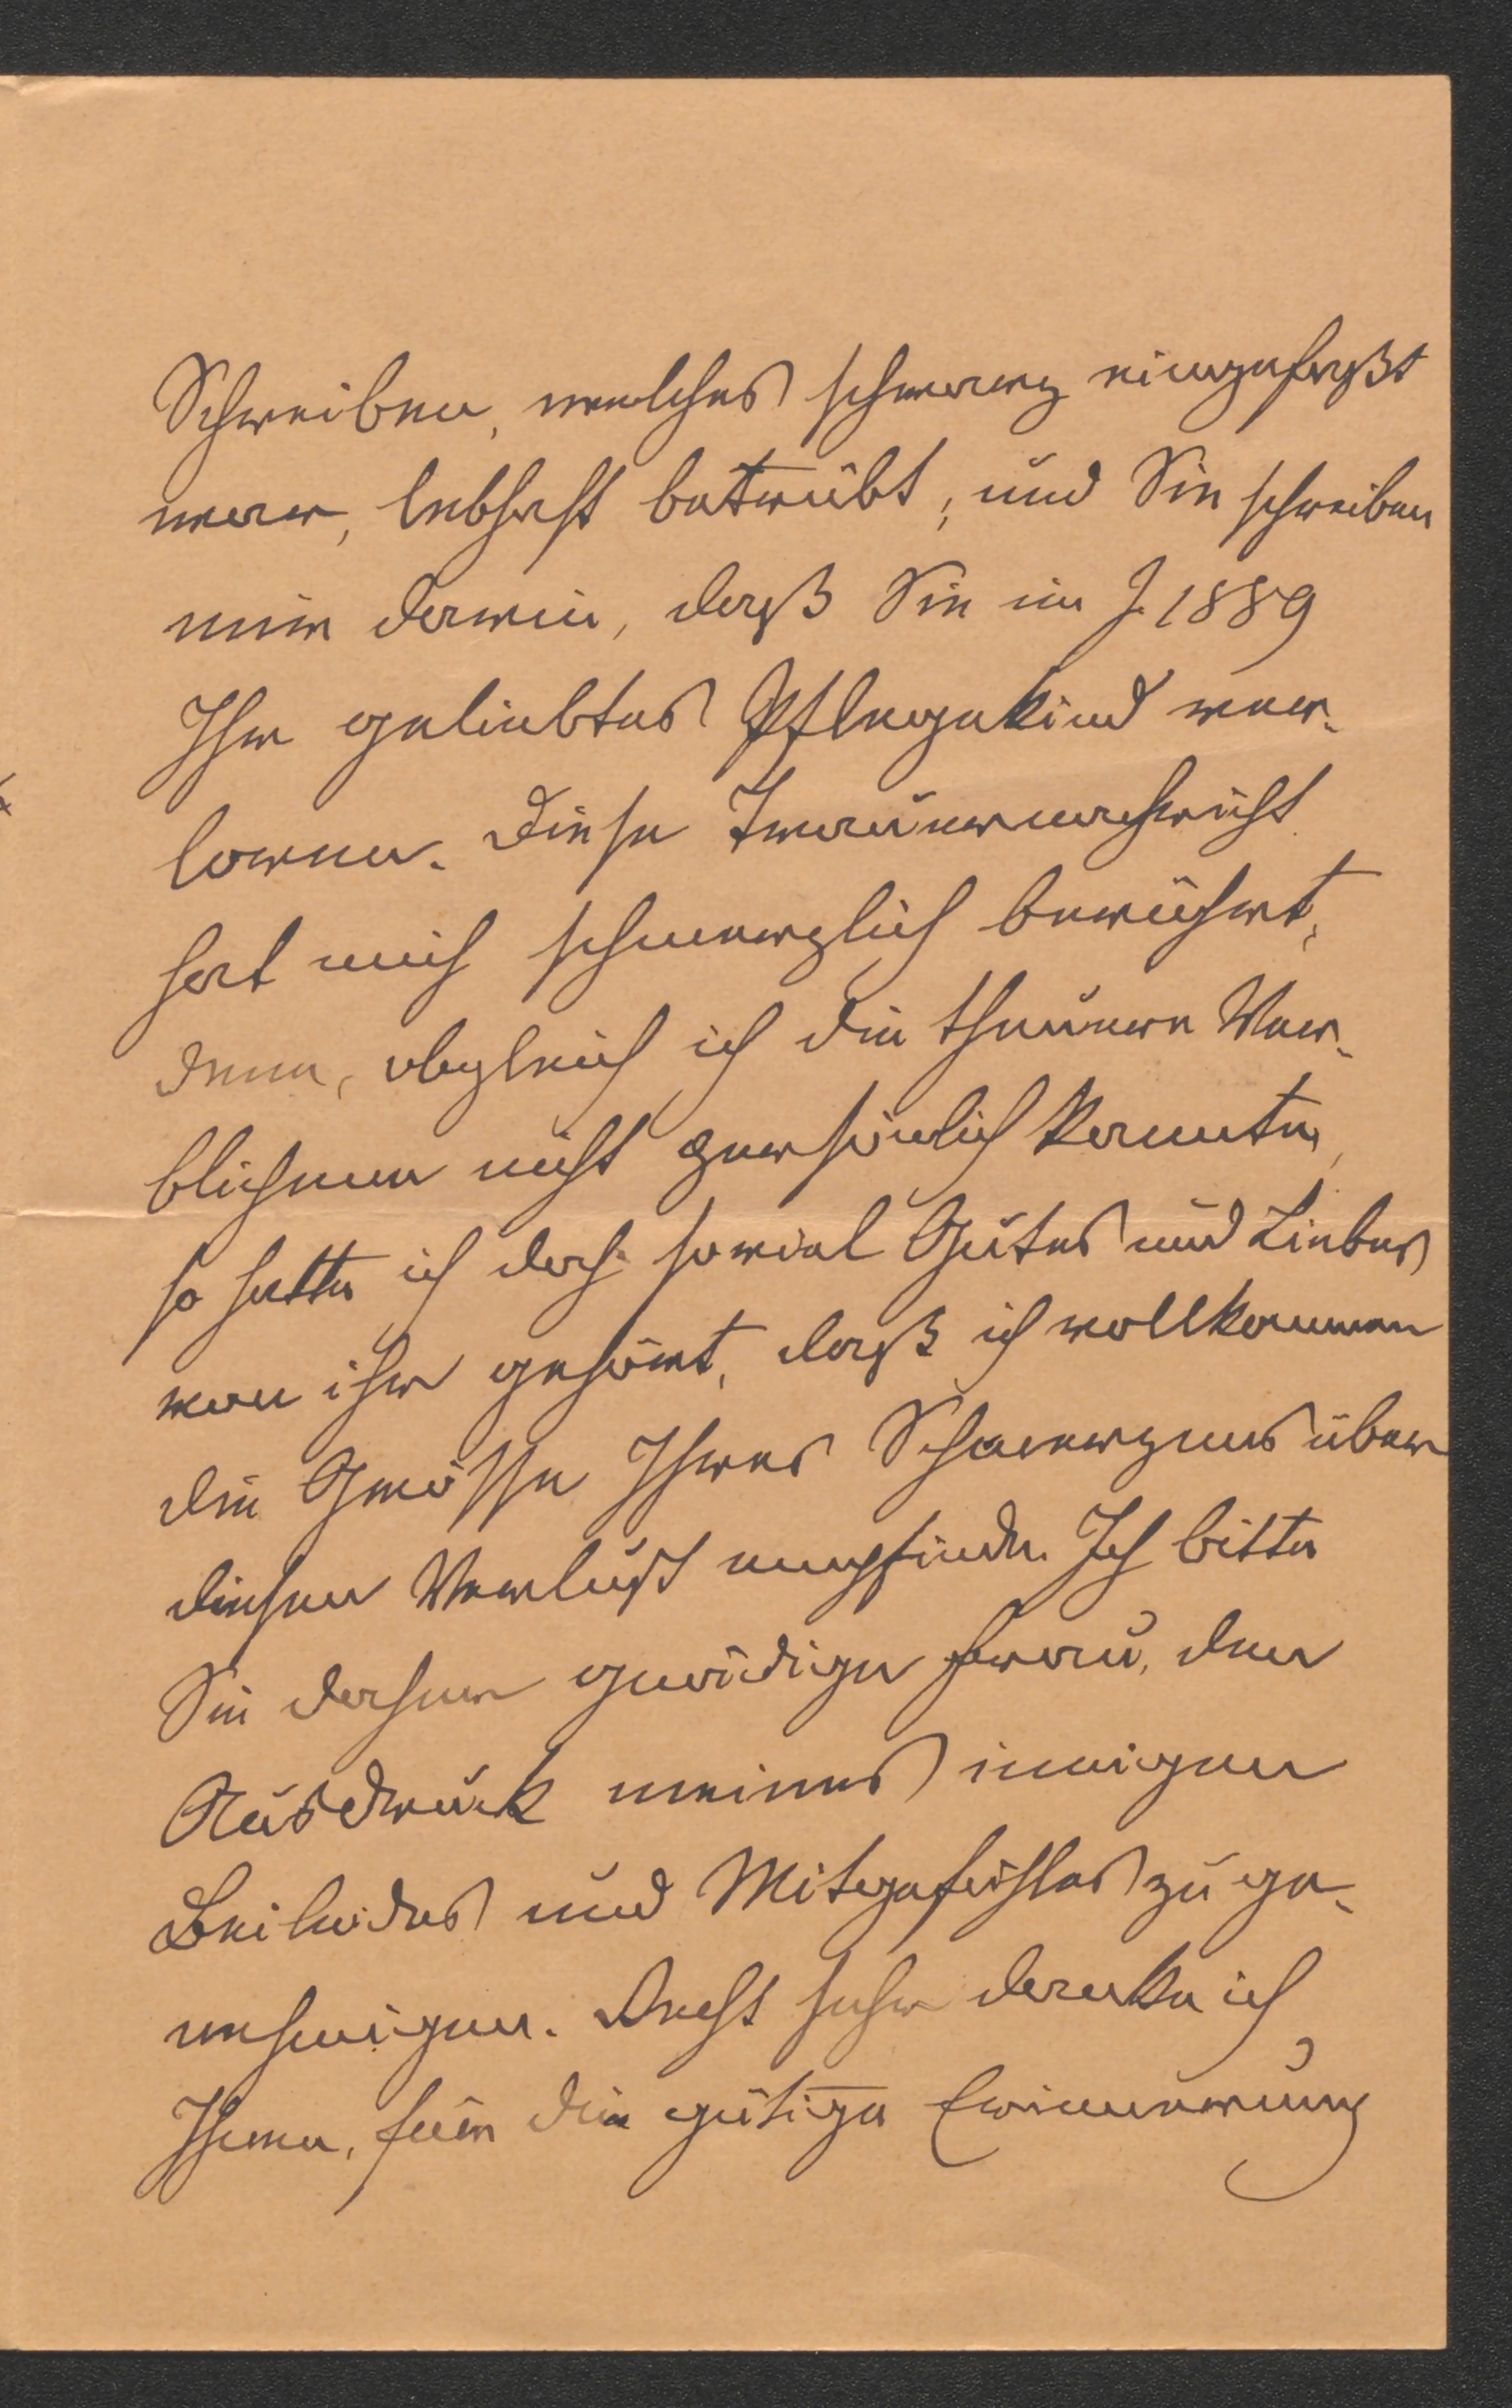 Schreiben, welches schwarz eingefaßt
war, lebhaft betrübt, und Sie schreiben
mir darin, daß Sie im J. 1889
Ihr geliebtes Pflegekind ver-
loren. Diese Trauernachricht
hat mich schmerzlich berührt,
denn, obgleich ich die theuere Ver-
blichene nicht persönlich kannte,
so hatte ich doch soviel Gutes und Liebes
von ihr gehört, daß ich vollkommen
die Grösse Ihres Schmerzens über
diesen Verlust empfinde. Ich bitte
Sie daher gnädige Frau, den
Ausdruck meines innigen
Beileides und Mitgefühles zu ge-
nehmigen. Recht sehr danke ich
Ihnen, für die gütige Erinnerung